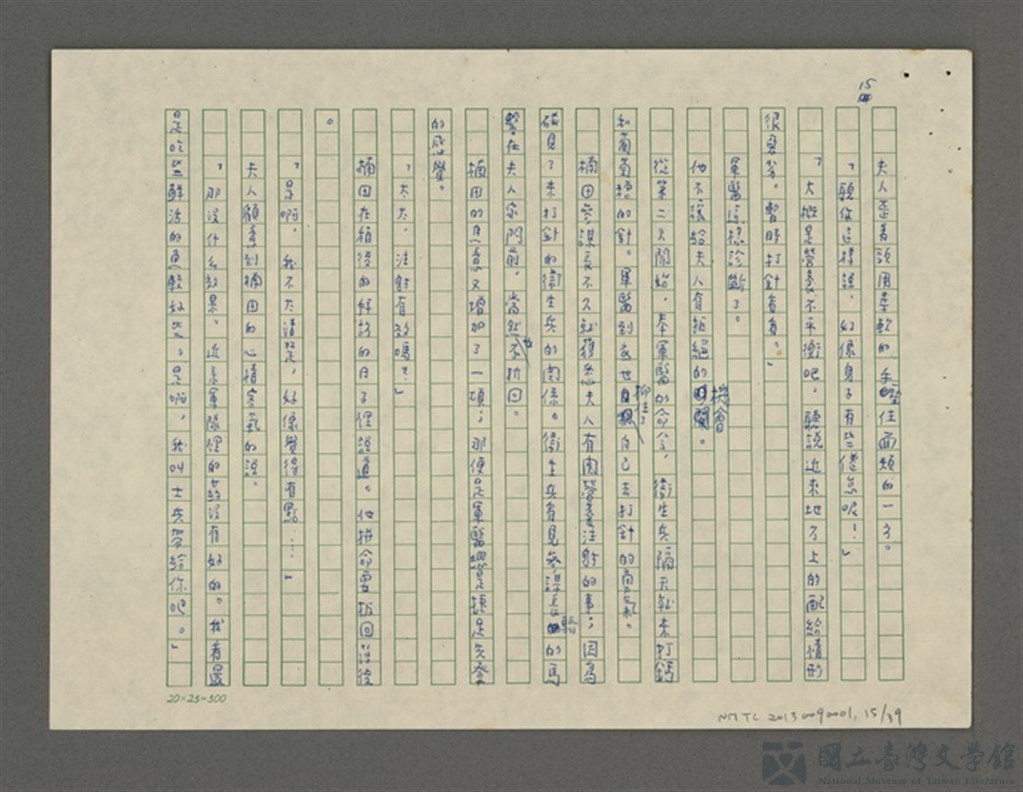 15
夫人歪着頭用柔軟的手壓住面頰的一方。
「聽你這樣說，好像身子有些倦怠呢！」
「大概是營養不平衡吧。聽說近來地方上的配給情形
很惡劣。暫時打針看看。」
軍醫這樣診斷了。
他不讓給夫人有拒絕的機會。
從第二天開始，奉軍醫的命令，衛生兵隔天就來打鈣
和葡萄糖的針。軍醫到底也抑住了自己去打針的勇氣。
楠田參謀長不久就獲悉夫人有関營養注射的事；因為
碰見了來打針的衛生兵的関係。衛生兵看見參謀長的馬
繫在夫人家門前，當然也折回。
楠田的恩惠又增加了一項；那便是軍醫總是領是先發
的感覺。
「太太，注射有效嗎？」
楠田在稍後的好訪的日子裡說道。他拼命要扳回落後
。
「是啊。我不大清楚，好像覺得有點……」
夫人顧慮到楠田的心情客氣的說。
「那沒什麼效果。近來軍隊裡的葯沒有好的。我看還
是吃些鮮活的魚較好些。是啊，我叫士兵帶給你吧。」
20×25=500
NMTL 20130090001, 15/39
國立臺灣文學館
National Museum of Taiwan Literature